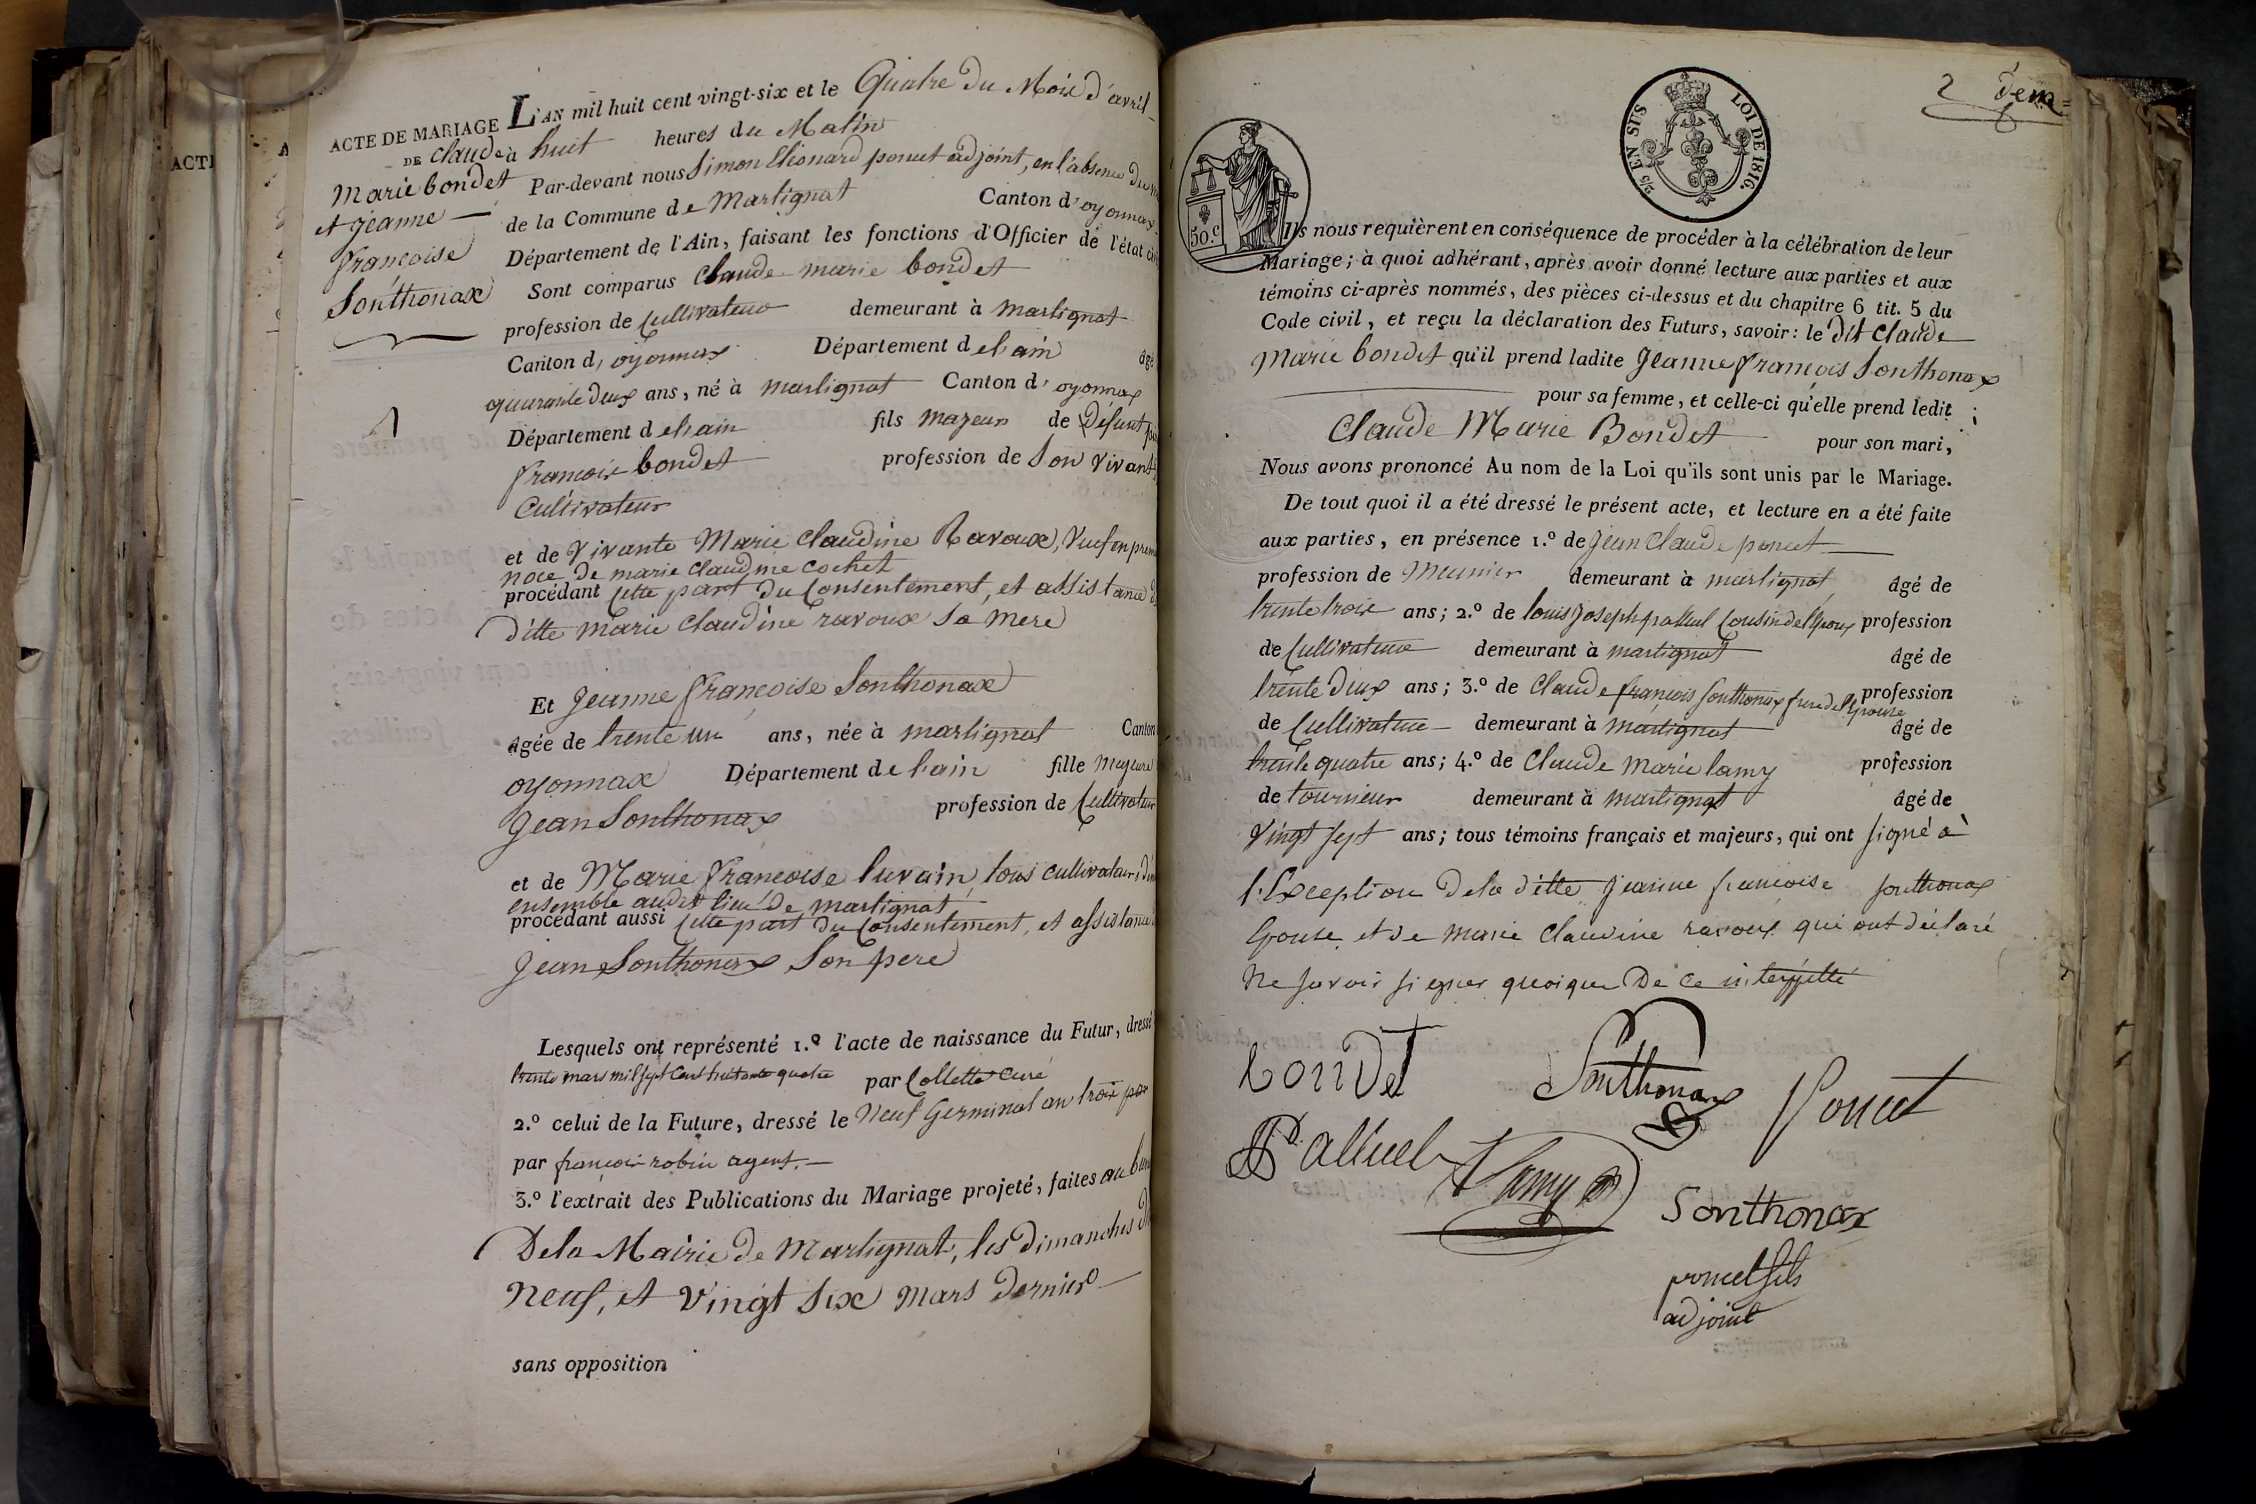 ACTI
A
ACTE DE MARIAGE
DE Claude
Marie bondet
et jeanne —
françoise
Sonthonax
1
L'AN mil huit cent vingt-six et le Quatre du Mois d'avril
à huit heures du Matin
Par-devant nous Simon Elionard poncet adjoint, en l'absence du
de la Commune de Martignat Canton d'oyonnax
Département de l'Ain, faisant les fonctions d'Officier de l'état
Sont comparus Claude marie bondet
profession de Cultivateur demeurant à martignat
Canton d, oyonnax Département de l'ain âgé
quarante deux ans, né à martignat Canton d' oyonnax
Département de l'ain fils majeur de Défunt
françois bondet profession de Son vivant
Cultivateur
et de Vivante Marie Claudine Ravoux, Veuf en
noce de marie claudine cochet
procédant cette part du Consentement, et assistance
ditte marie Claudine ravoux Sa mere
Et Jeanne françoise Sonthonax
âgée de trente un ans, née à martignat Canton
oyonnax Département de l'ain fille majeure
Jean Sonthonax profession de Cultivateur
et de Marie françoise luvain, tous cultivateurs
ensemble audit lieu de martignat
procédant aussi cette part du Consentement, et assistance
Jean Sonthonax Son pere
Lesquels ont représenté 1.º l'acte de naissance du Futur, dressé
trente mars mil sept cent huitante quatre par Collette Curé
2.º celui de la Future, dressé le Neuf Germinal an trois par
par françois robin agent. —
3.º l'extrait des Publications du Mariage projeté, faites au
De la Mairie de Martignat, les dimanches
neuf, et vingt Six mars dernier —
sans opposition
2 dem
2/5 EN SUS LOI DE 1816.
50.c
Ils nous requièrent en conséquence de procéder à la célébration de leur
Mariage ; à quoi adhérant, après avoir donné lecture aux parties et aux
témoins ci-après nommés, des pièces ci-dessus et du chapitre 6 tit. 5 du
Code civil, et reçu la déclaration des Futurs, savoir : le dit Claude
Marie bondet qu'il prend ladite Jeanne françois Sonthonax
pour sa femme, et celle-ci qu'elle prend ledit
Claude Marie Bondet pour son mari,
Nous avons prononcé Au nom de la Loi qu'ils sont unis par le Mariage.
De tout quoi il a été dressé le présent acte, et lecture en a été faite
aux parties, en présence 1.º de Jean Claude poncet
profession de Meunier demeurant à martignat âgé de
trente trois ans ; 2.º de louis Joseph palluel Cousin del'Epoux profession
de Cultivateur demeurant à martignat âgé de
trente deux ans ; 3.º de Claude françois Sonthonax frere del'Epouse profession
de Cultivateur demeurant à martignat âgé de
trente quatre ans ; 4.º de Claude Marie lamy profession
de tourneur demeurant à martignat âgé de
Vingt Sept ans ; tous témoins français et majeurs, qui ont signé à
l'Exception dela ditte Jeanne françoise sonthonax
Epouse et de marie Claudine ravoux qui ont déclaré
Ne savoir signer quoique De ce interpellé
bondet Sonthonax Poncet
Palluel Lamy
Sonthonax
poncet fils
adjoint